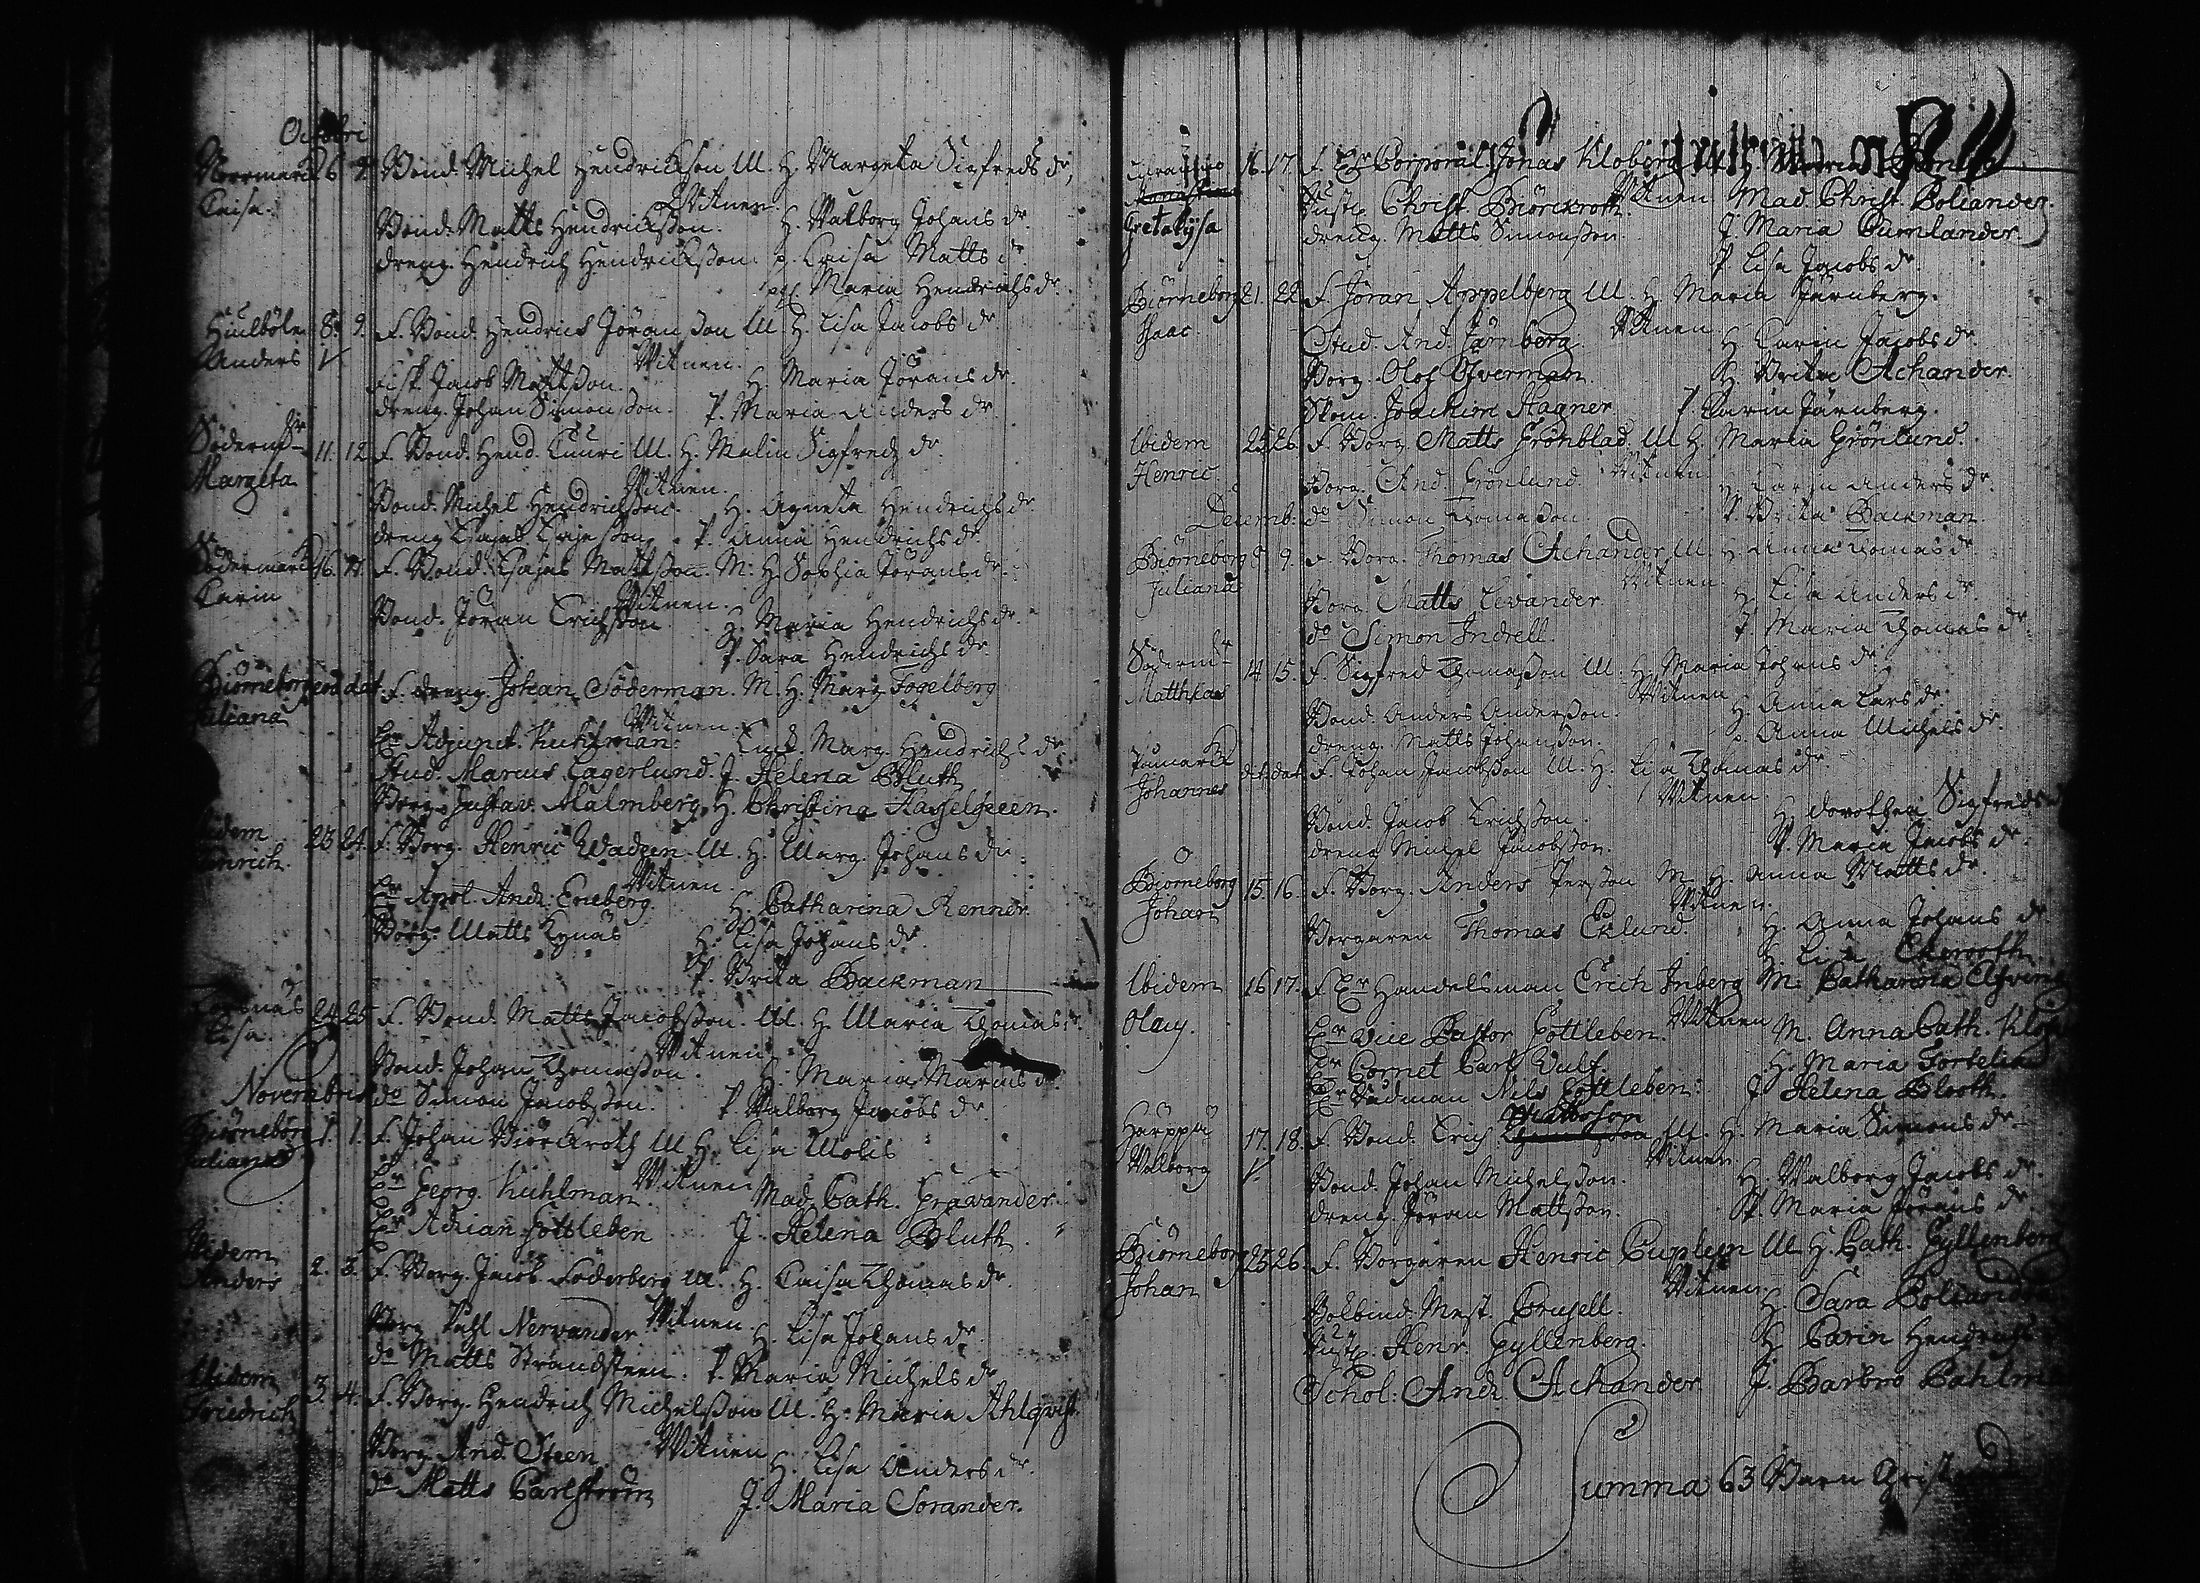 Octobri
Norrmark 6 7. Bond. Michel Hendrickson M. H. Margeta Sigfreds dr,
Caisa.
Witnen.
Bond. Matts Hendrichsson. H. Walborg Johans dr.
dreng. Hendrich Hendricksson. P. Caisa Matts dr.
Maria Hendrichs dr.
Hiulböle 8. 9. F. Bond. Hendrich Jöransson M. H. Lisa Jacobs dr
Anders
Witnen.
Jacob Mattsson. H. Maria Jörans dr.
dreng. Johan Simonsson. P. Maria Anders dr.
Söderm. 11. 12. F. Bond. Hend. Cuuri M. H. Malin Sigfredz dr.
Margeta
Witnen.
Bond. Michel Hendrichsson. H. Agneta Hendrichs dr
dreng Esajas Esajesson. P. Anna Hendrichs dr.
Södermark 16. F. Bond. Esajas Mattsson. M. H. Sophia Jörans dr.
Carin
Witnen.
Bond. Jöran Erichsson H. Maria Hendrichs dr.
P. Sara Hendrichs dr.
Biörneborg eod dat F. dreng. Johan Söderman. M. H. Marg Fogelberg
Juliana
Witnen.
Hr Adjunct. Kuhlman. Marg. Hendrichs dr
Stud. Marcus Lagerlund. J. Helena Bluth
Borg. Gustav. Malmberg. H. Christina Hasselgreen.
Ibidem 23 24. F. Borg. Henric Wadeen M. H. Marg. Johans dr.
Henrich.
Witnen.
Hr Apol. And. Eneberg. H. Catharina Renner.
Borg. Matts Lynäs H. Lisa Johans dr.
P. Brita Backman
24 25 F. Bond. Matts Jacobsson. M. H. Maria Thomas dr.
Lisa.
Witnen
Bond. Johan Thomasson. H. Maria Marcus dr
Novembris do Simon Jacobsson. P. Walborg Jacobs dr
Biörneborg 1. 1. F. Johan Biörckroth M. H. Lisa Molis
Juliana
Witnen
Hr Georg. Kuhlman Mad. Cath. Gravander.
Hr Adrian Gottleben J. Helena Bluth.
Ibidem 2. 3. F. Borg. Jacob Söderberg M. H. Caisa Thomas dr
Anders
Witnen.
Borg. Påhl Nervander H. Lisa Johans dr.
do Matts Strandsteen. P. Maria Michels dr
Ibidem 3. 4. F. Borg. Hendrich Michelsson M. H. Maria Ahlqvist.
Friedrich
Witnen
Borg. And. Steen H. Lisa Anders dr.
do Matts Carlström J. Maria Sorander.
16. 17. F. Hr Corporal Jonas Kloberg
Gretalysa
Witnen
Christ. Biörckroth. Mad. Christ. Boliander.
dreng. Matts Simonsson. J. Maria Cumlander.
P. Lisa Jacobs dr.
Biörneborg 21. 22. F. Jöran Appelberg M. H. Maria Järnberg.
Isaac.
Witnen
Stud. And. Järnberg. H. Carin Jacobs dr.
Borg. Olof Öfverman. H. Brita Achander.
Skom. Joachim Hagner J Carin Järnberg.
Ibidem 25 26. F. Borg. Matts Grönblad. M H. Maria Grönlund.
Henric
Witnen
Borg. And. Grönlund. H. Carin Anders dr.
Decemb. do Simon Thomasson. P. Brita Backman.
Biörneborg 8 9. F. Borg. Thomas Achander M. H. Anna Thomas dr
Juliana
Witnen
Borg. Matts Levander. H. Lisa Anders dr.
do Simon Indrell. P. Maria Thomas dr.
Söderm. 14 15. F. Sigfred Thomasson M. H. Maria Johans dr.
Matthias
Witnen
Bond. Anders Andersson. H. Anna Lars dr.
dreng. Matts Johansson. P. Anna Michels dr.
det. dat. F. Johan Jacobsson M. H. Lisa Thomas dr
Johannes
Witnen
Bond. Jacob Erichsson. H. Dorothea Sigfreds
dreng Michel Jacobsson. P. Maria Jacobs dr.
Biörneborg 15. 16. F. Borg. Anders Jersson M. H. Anna Matts dr.
Johan
Witnen.
Borgaren Thomas Eklund. H. Anna Johans dr
H. Lisa Ekerooth
Ibidem 16 17. F. Hr Handelsman Erich Inberg M. Catharina
Olaus.
Witnen
Hr Vice Pastor Gottleben. M. Anna Cath.
Hr Cornet Carl Wulf. H. Maria Fortelia
Hr Rådman Nils Gottleben. J Helena Blooth.
Harppå 17. 18 F. Bond. Erich Mattsson M. H. Maria Simons dr.
Walborg
Witnen
Bond. Johan Michelsson. H. Walborg Jacobs dr.
dreng. Jöran Mattsson. P. Maria Jörans dr
Biörneborg 25 26. F. Borgaren Henric Cupleen M. H. Cath. Gyllenberg
Johan
Witnen
Bokbind. Mest. Crusell. H. Sara Boliander
Henr. Gyllenberg. H Carin Hendrichs
Schol. And. Achander J. Barbro
Summa 63 Barn